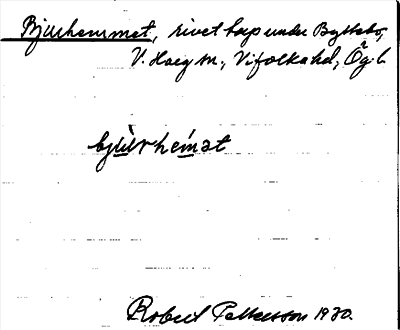 Bjurhemmet, rivet torp under Bylltebo,
V. Harg sn., Vifolka hd, Ög. l.
bju̲rhem̲ǝt
Robert Pettersson 1930.